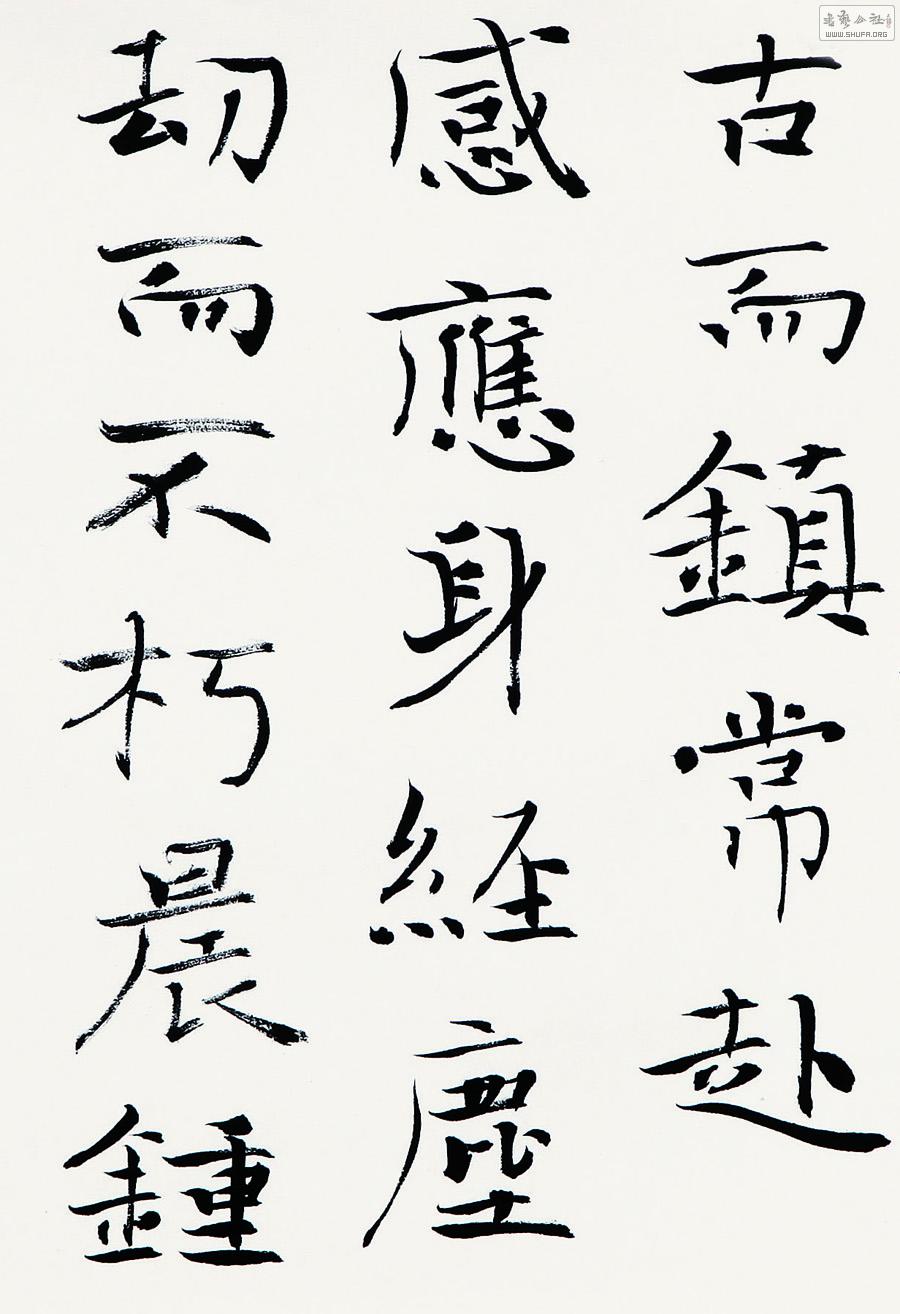 古而鎮常赴
感應身經塵
劫而不朽晨鍾
書藝公社
WWW.SHUFA.ORG